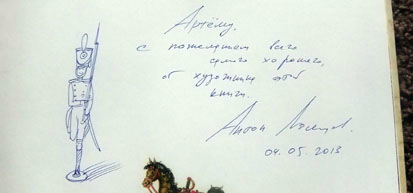 Артёму.
с пожеланием всего
самого хорошего,
от художника этой
книги.
Антон
04.05.2013